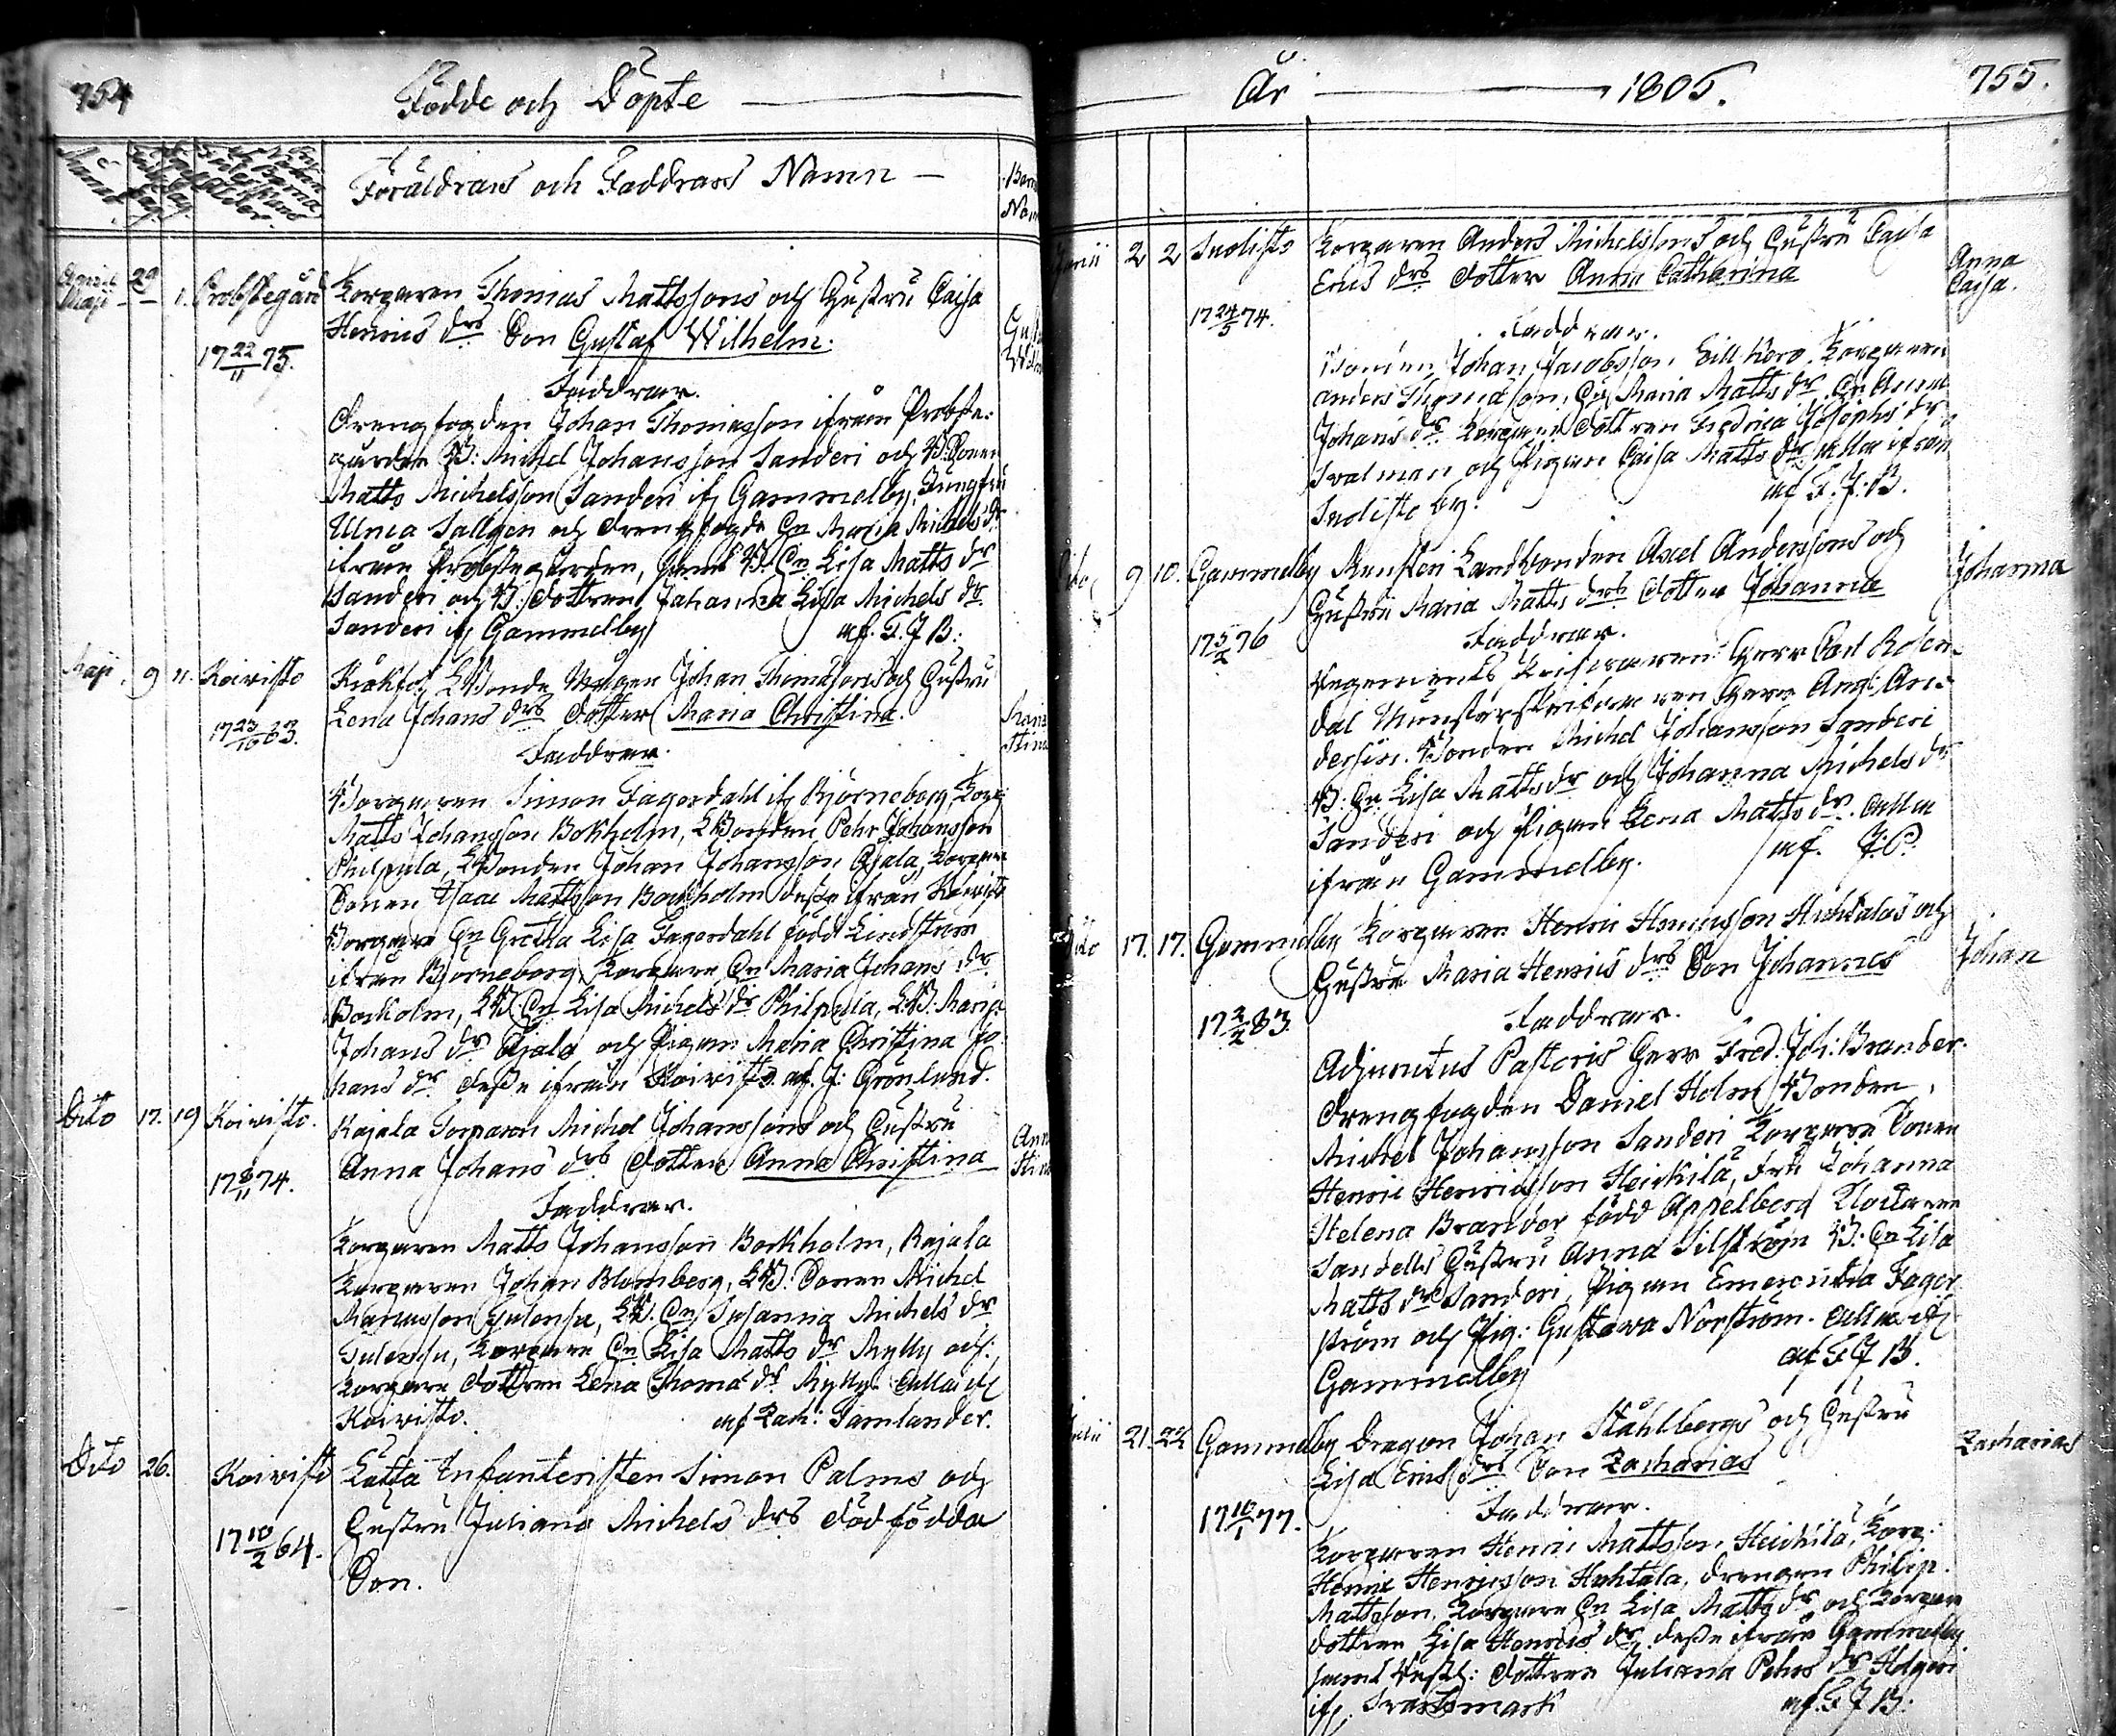 754
Födde och Döpte
Föräldrars och Faddrars Namn
Barn
Nam
April 29
Maji 1. Probstegård Torparen Thomas Mattssons och Hustru Caisa
Henrics drs Son Gustaf Wilhelm.
17 22/11 75.
Faddrar.
Drengfogden Johan Thomasson ifrån Probste-
gården B: Michel Johansson Sanderi och B: Sonen
Matts Michelsson Sanderi if Gammelby, Jungfru
Ulrica Sallgen och Drengfogde Hu Maria Michels dr
ifrån Probstegården, samt B. Hu Lisa Matts dr
Sanderi och B: dottren Johanna Lisa Michels dr
Sanderi if Gammelby af F. J B:
Maji 9 11. Koivisto Johan Thomassons och Hustru
Lena Johans drs Dotter Maria Christina.
17 23/10 63.
Maria
Stina
Faddrar.
Borgaren Simon Fagerdahl if Björneborg, Torp:
Matts Johansson Bokholm, LBonden Pehr Johansson
Philpula, LBonden Johan Johansson Ojala, Torpare
Sonen Isaac Mattsson Bockholm desse ifrån Koivisto
Borgare Hu Gretha Lisa Fagerdahl född Lindström
ifrån Björneborg, Torpare Hu Maria Johans dr
Bockholm, LB. Hu Lisa Michels dr Philpula, LB: Maria
Johans dr Ojala och Pigan Maria Christina Jo-
hans dr desse ifrån Koivisto af J: Grönlund.
Dito 17. 19 Koivisto. Rajala Torparen Michel Johanssons och Hustru
Anna Johans drs Dotter Anna Christina
17 8/11 74.
Anna
Stina
Faddrar.
Torparen Matts Johansson Bockholm, Rajala
Torparen Johan Blomberg, LB: Sonen Michel
Marcusson Tulensu, LB. Hu Susanna Michels dr
Tulensu, Torpare Hu Lisa Matts dr Mylly och:
Torpare dottren Lena Thoma dr Mylly. Alla if
Koivisto. af Zach: Samlander.
Dito 26. Koivisto Lätta Infanteristen Simon Palms och
Hustru Juliana Michels drs dödfödda
17 10/2 64.
Son.
År 1805. 755.
Junii 2 2 Torparen Anders Michelssons och Hustru Caisa
Erics drs dotter Anna Catharina
Anna
Caisa.
17 24/5 74.
Faddrar.
Bonden Johan Jacobsson Torparen
Anders Thomasson, Hu Maria Matts dr Hu Anna
Johans dr Torpare dottren Fredrica Josephs dr
och Pigan Caisa Matts dr alla ifrån
by. af F. J. B.
Dito 9 10. Gammelby Landbonden Axel Anderssons och
Hustru Maria Matts drs dotter Johanna
Johanna
17 5/2 76
Faddrar.
Regements Herr Carl Rosen-
dal Munsterskrifvaren Herr Ang: An-
dersin. Bonden Michel Johansson Sanderi
B: Hu Lisa Matts dr och Johanna Michels dr
Sanderi och Pigan Lena Matts dr. Alla
ifrån Gammelby. af J. P.
Dito 17. 17. Gammelby Torparen Henric Henricsson Huhtalas och
Hustru Maria Henrics drs Son Johannes
Johan
17 2/2 83.
Faddrar.
Adjunctus Pastoris Herr Fred: Joh: Brander.
Drengfogden Daniel Holm Bonden
Michel Johansson Sanderi Torpare Sonen
Henric Henricsson Heickilä, Fru Johanna
Helena Brander född Appelberg Klockaren
Sandells Hustru Anna Silström B. Hu Lisa
Matts dr Sanderi, Pigan Emerentia Fager
ström och Pig: Gustava Norström. Alla if
Gammelby af F J B.
Junii 21. 22 Gammelby Dragon Johan Ståhlbergs och Hustru
Lisa Erics drs Son Zacharias
Zacharias
17 10/1 77.
Faddrar.
Torparen Henric Mattsson Heickilä, Torp:
Henric Henricsson Huhtala, Drengen Philip.
Mattsson, Torpare Hu Lisa Matts dr och Torpare
dottren Lisa Henrics dr desse ifrån Gammelby
samt dottren Juliana Pehrs dr Holgeri
if Svartsmark af F J B.